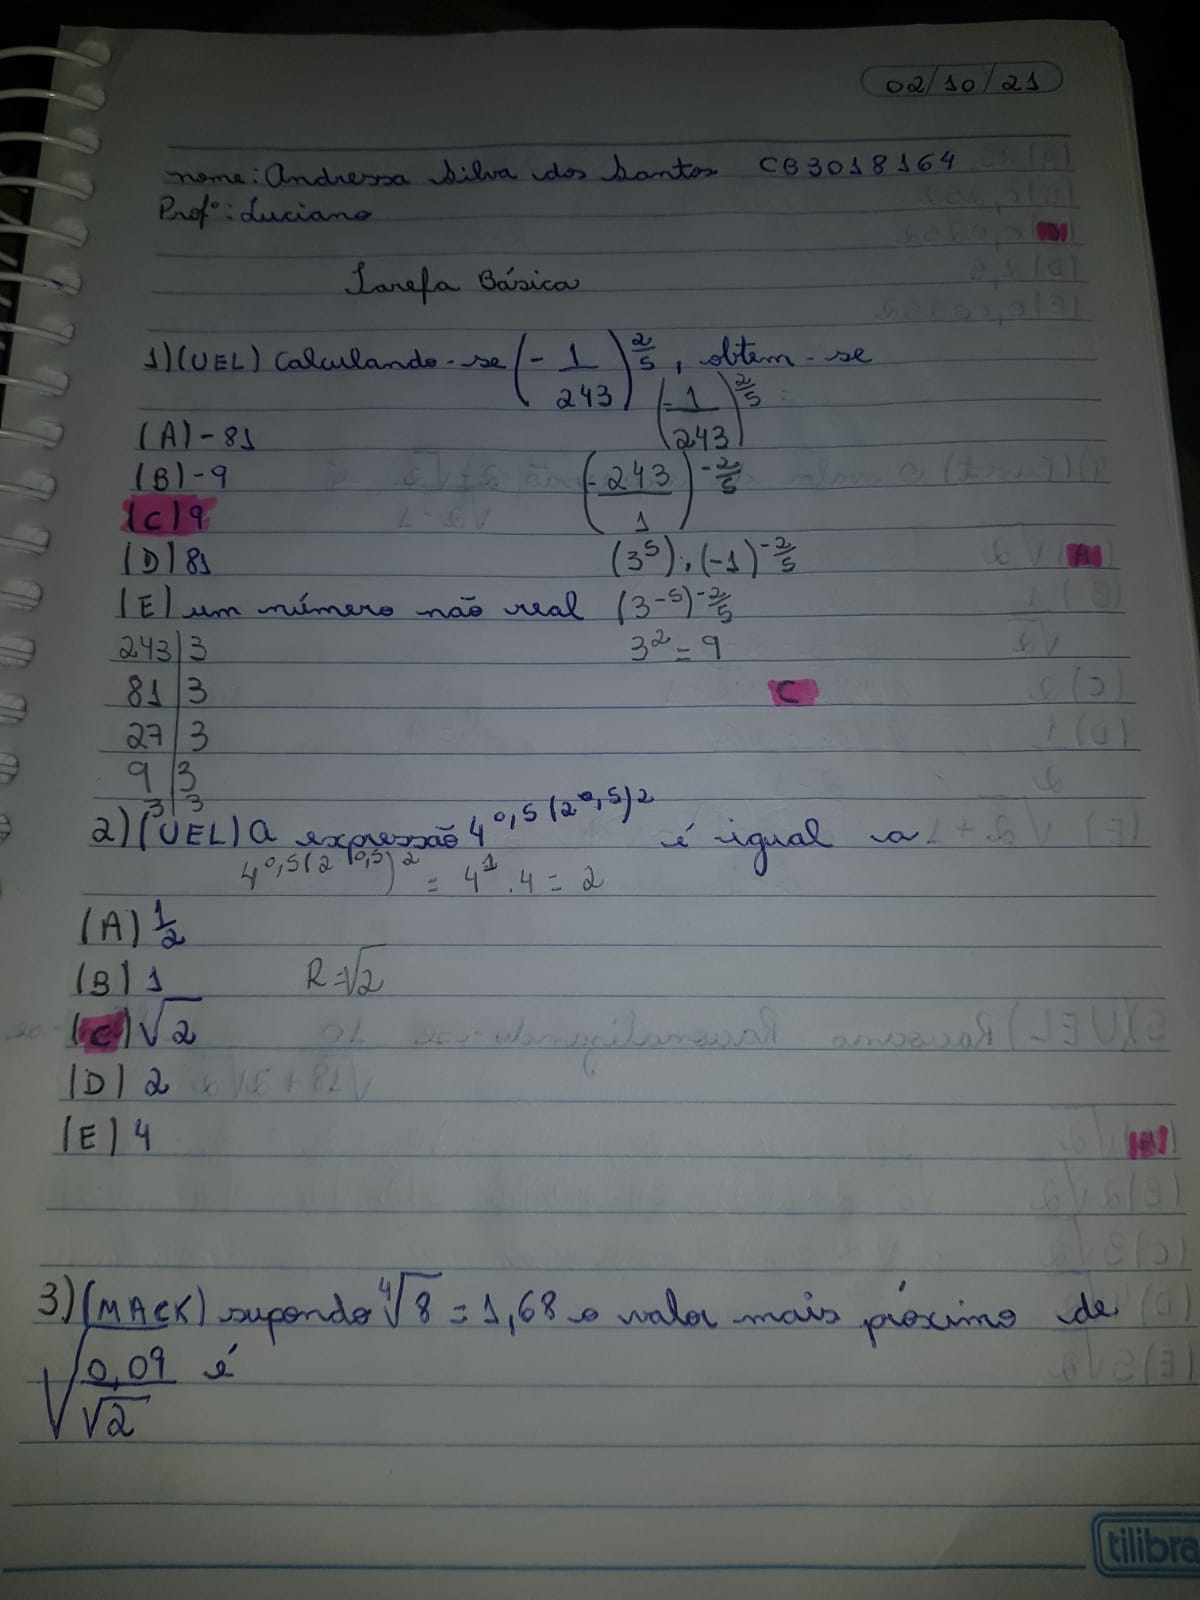 02/10/21
nome: Andressa Silva dos Santos CB3018164
Profº: Luciano
Tarefa Básica
1) (UEL) Calculando-se (-1/243)^2/5, obtem-se
(-1/243)^2/5 =
(A) -81
(B) -9
(-243/1)^-2/5
(C) 9
(D) 81
(3^5).(-1)^-2/5
(E) um número não real
(3^-5)^-2/5
243|3
3^2 = 9
81|3
C
27|3
9|3
3|3
2) (UEL) a expressão 4^0,5(2^0,5)2 é igual a
4^0,5(2^0,5)2 = 4^1.4 = 2
(A) 1/2
(B) 1
R=√2
(C) √2
(D) 2
(E) 4
3) (MACK) supondo ⁴√8 = 1,68 o valor mais próximo de
√(0,09/√2) é
tilibra